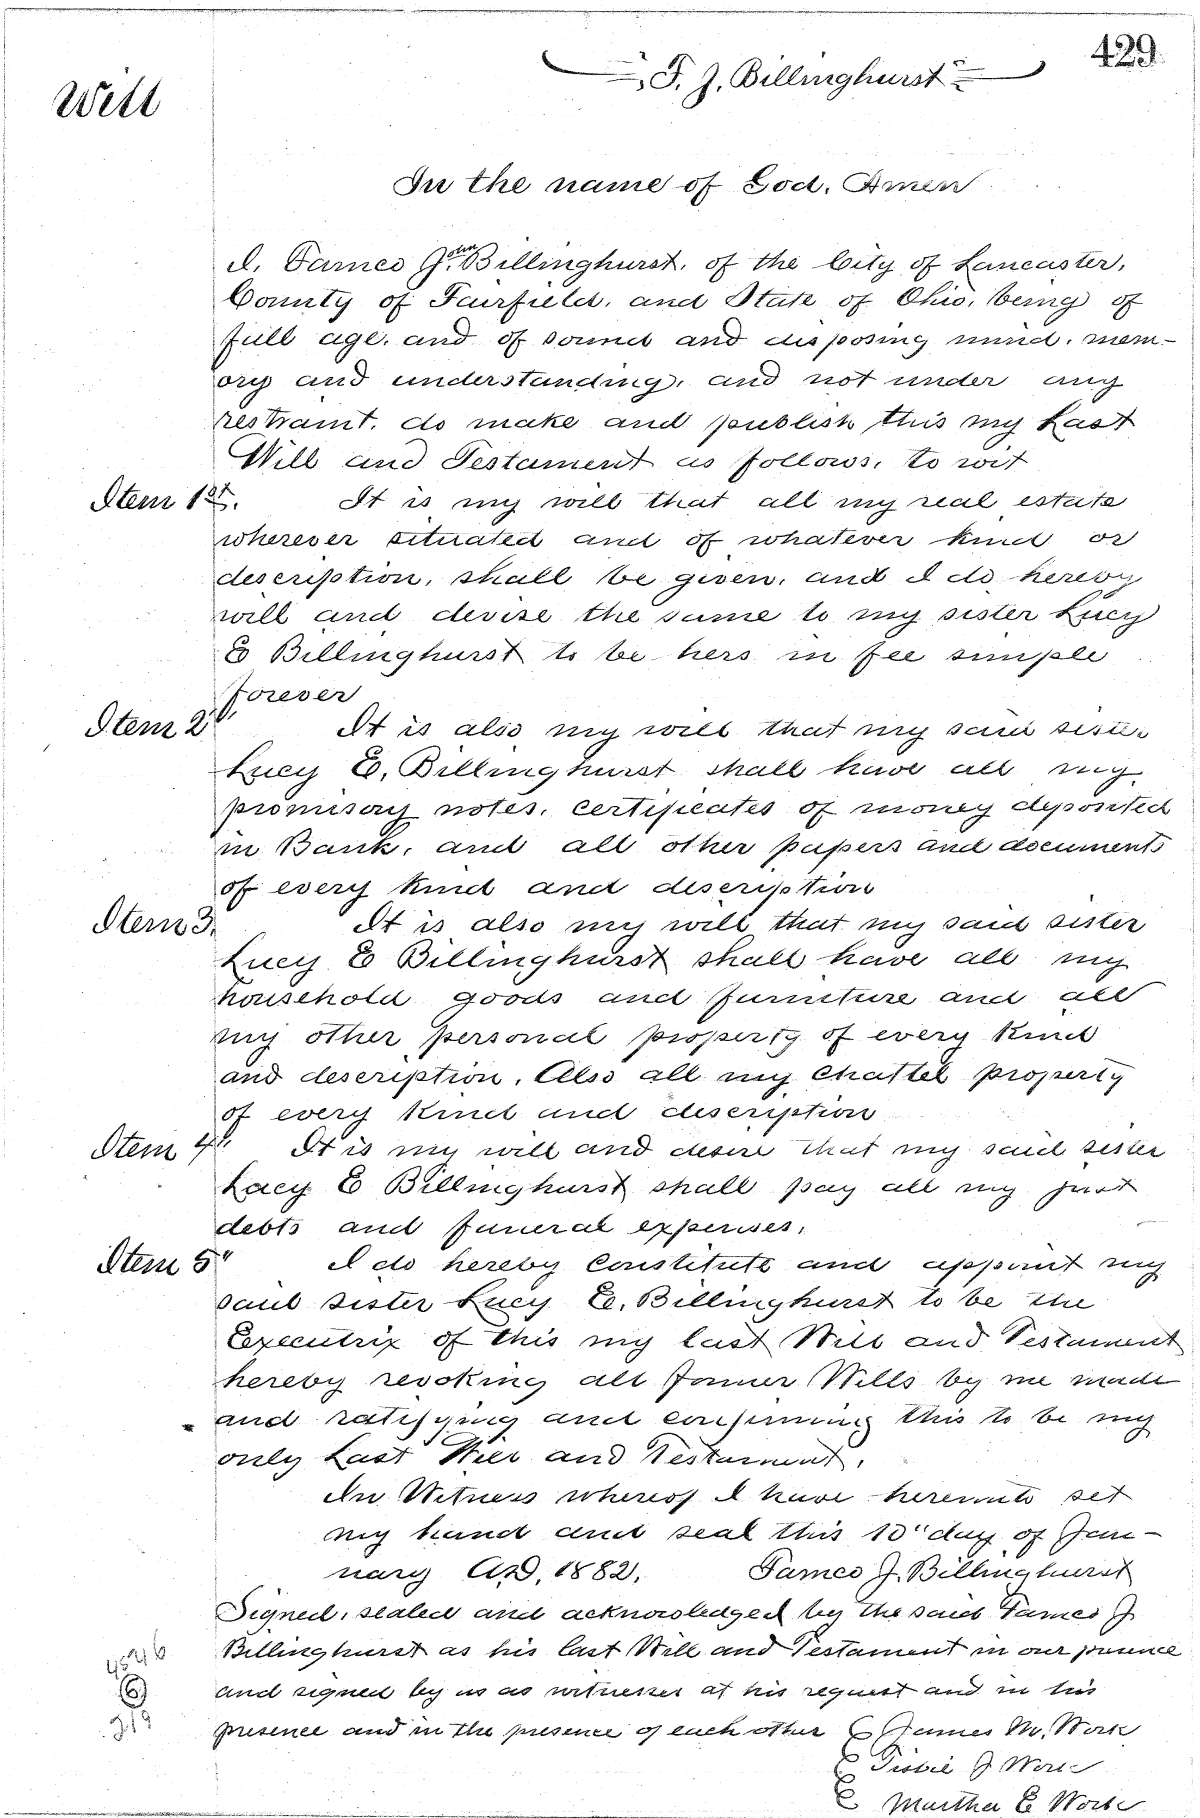 429
Will
F. J. Billinghurst
In the name of God, Amen
I, James John Billinghurst, of the City of Lancaster,
County of Fairfield, and State of Ohio, being of
full age, and of sound and disposing mind, mem-
ory and understanding, and not under any
restraint, do make and publish this my Last
Will and Testament as follows, to wit
Item 1st. It is my will that all my real estate
wherever situated and of whatever kind or
description, shall be given, and I do hereby
will and devise the same to my sister Lucy
E Billinghurst to be hers in fee simple
forever
Item 2" It is also my will that my said sister
Lucy E, Billinghurst shall have all my
promisory notes, certificates of money deposited
in Bank, and all other papers and documents
of every kind and description
Item 3. It is also my will that my said sister
Lucy E Billinghurst shall have all my
household goods and furniture and all
my other personal property of every kind
and description. Also all my chattel property
of every kind and description
Item 4" It is my will and desire that my said sister
Lucy E Billinghurst shall pay all my just
debts and funeral expenses.
Item 5" I do hereby constitute and appoint my
said sister Lucy E, Billinghurst to be the
Executrix of this my last Will and Testament
hereby revoking all former Wills by me made
and ratifying and confirming this to be my
only Last Will and Testament.
In Witness whereof I have hereunto set
my hand and seal this 10" day of Jan-
uary A.D, 1882. James J. Billinghurst
Signed, sealed and acknowledged by the said James J
Billinghurst as his last Will and Testament in our presence
and signed by us as witnesses at his request and in his
presence and in the presence of each other James M. Work
J Work
Martha E Work
4546
6
219